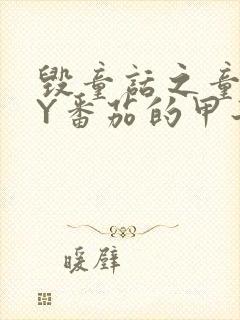 毁童话之童
Y番茄的甲
暖壁